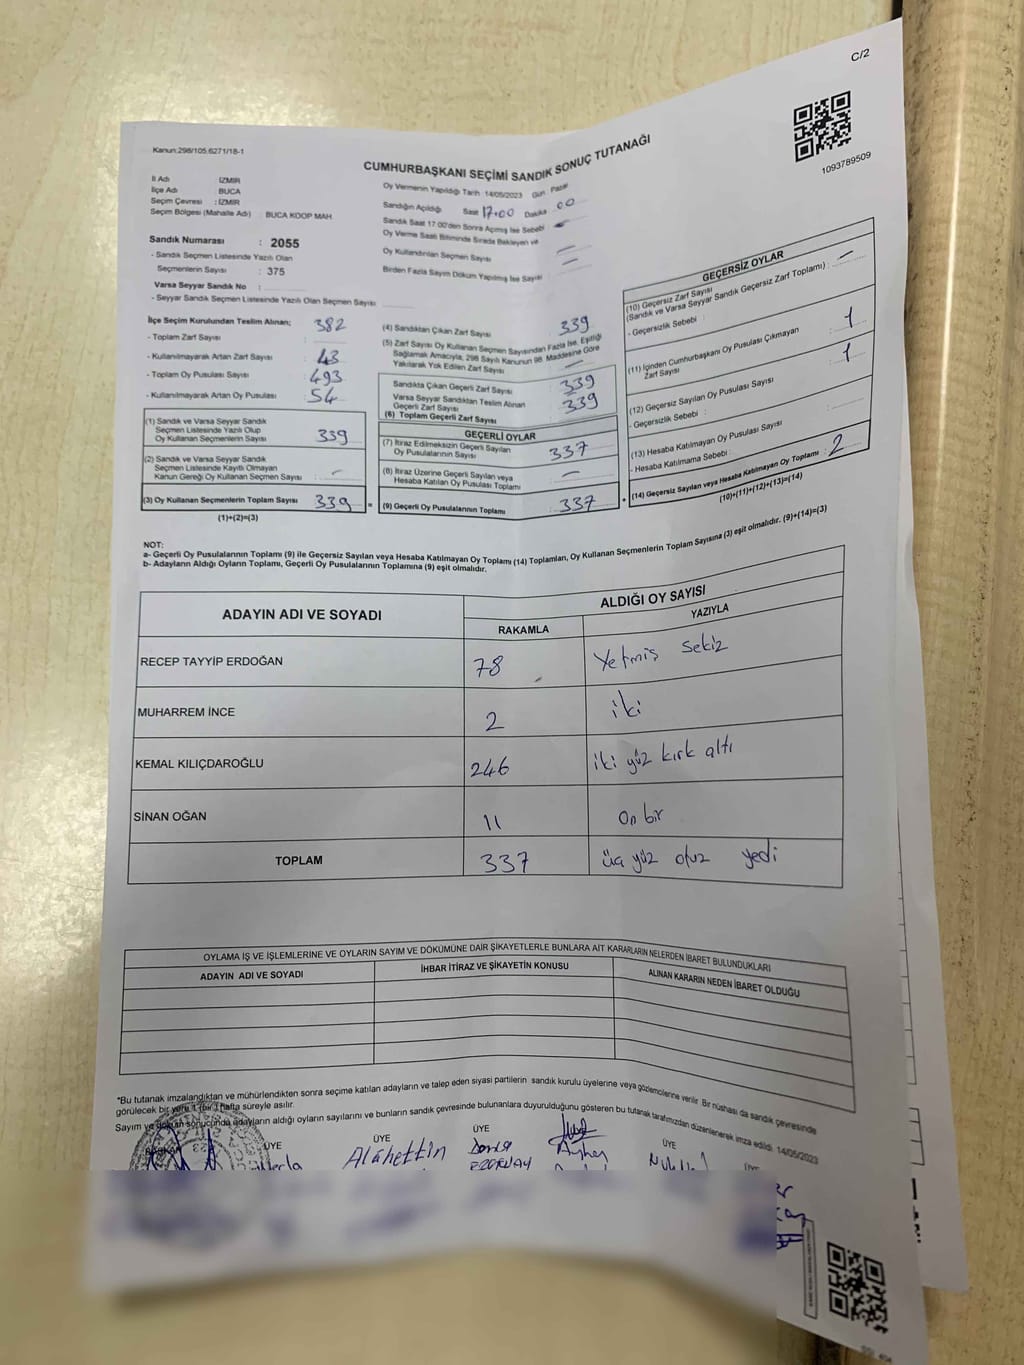 C/2
1093789509
Kanun:298/105.6271/18-1
CUMHURBAŞKANI SEÇİMİ SANDIK SONUÇ TUTANAĞI
İl Adı : İZMİR
İlçe Adı : BUCA
Seçim Çevresi : İZMİR
Seçim Bölgesi (Mahalle Adı) : BUCA KOOP MAH.
Sandık Numarası : 2055
- Sandık Seçmen Listesinde Yazılı Olan
Seçmenlerin Sayısı : 375
Varsa Seyyar Sandık No :
- Seyyar Sandık Seçmen Listesinde Yazılı Olan Seçmen Sayısı
Oy Vermenin Yapıldığı Tarih 14/05/2023 Gün Pazar
Sandığın Açıldığı Saat 17.00 Dakika 00
Sandık Saat 17:00'den Sonra Açılmış İse Sebebi -
Oy Verme Saati Bitiminde Sırada Bekleyen ve
Oy Kullandırılan Seçmen Sayısı -
Birden Fazla Sayım Döküm Yapılmış İse Sayısı -
İlçe Seçim Kurulundan Teslim Alınan;
- Toplam Zarf Sayısı : 382
- Kullanılmayarak Artan Zarf Sayısı : 43
- Toplam Oy Pusulası Sayısı : 493
- Kullanılmayarak Artan Oy Pusulası : 54
(1) Sandık ve Varsa Seyyar Sandık
Seçmen Listesinde Yazılı Olup
Oy Kullanan Seçmenlerin Sayısı 339
(2) Sandık ve Varsa Seyyar Sandık
Seçmen Listesinde Kayıtlı Olmayan
Kanun Gereği Oy Kullanan Seçmen Sayısı : -
(3) Oy Kullanan Seçmenlerin Toplam Sayısı 339 =
(1)+(2)=(3)
(4) Sandıktan Çıkan Zarf Sayısı 339
(5) Zarf Sayısı Oy Kullanan Seçmen Sayısından Fazla İse, Eşitliği
Sağlamak Amacıyla, 298 Sayılı Kanunun 98. Maddesine Göre
Yakılarak Yok Edilen Zarf Sayısı -
Sandıkta Çıkan Geçerli Zarf Sayısı 339
Varsa Seyyar Sandıktan Teslim Alınan
Geçerli Zarf Sayısı
(6) Toplam Geçerli Zarf Sayısı 339
GEÇERLİ OYLAR
(7) İtiraz Edilmeksizin Geçerli Sayılan
Oy Pusulalarının Sayısı 337
(8) İtiraz Üzerine Geçerli Sayılan veya
Hesaba Katılan Oy Pusulası Toplamı -
(9) Geçerli Oy Pusulalarının Toplamı 337 +
GEÇERSİZ OYLAR
(10) Geçersiz Zarf Sayısı
(Sandık ve Varsa Seyyar Sandık Geçersiz Zarf Toplamı) : -
- Geçersizlik Sebebi :
(11) İçinden Cumhurbaşkanı Oy Pusulası Çıkmayan
Zarf Sayısı 1
(12) Geçersiz Sayılan Oy Pusulası Sayısı 1
- Geçersizlik Sebebi :
(13) Hesaba Katılmayan Oy Pusulası Sayısı
- Hesaba Katılmama Sebebi :
(14) Geçersiz Sayılan veya Hesaba Katılmayan Oy Toplamı : 2
(10)+(11)+(12)+(13)=(14)
NOT:
a- Geçerli Oy Pusulalarının Toplamı (9) ile Geçersiz Sayılan veya Hesaba Katılmayan Oy Toplamı (14) Toplamları, Oy Kullanan Seçmenlerin Toplam Sayısına (3) eşit olmalıdır. (9)+(14)=(3)
b- Adayların Aldığı Oyların Toplamı, Geçerli Oy Pusulalarının Toplamına (9) eşit olmalıdır.
ADAYIN ADI VE SOYADI
ALDIĞI OY SAYISI
RAKAMLA YAZIYLA
RECEP TAYYİP ERDOĞAN 78 Yetmiş sekiz
MUHARREM İNCE 2 iki
KEMAL KILIÇDAROĞLU 246 iki yüz kırk altı
SİNAN OĞAN 11 On bir
TOPLAM 337 üç yüz otuz yedi
OYLAMA İŞ VE İŞLEMLERİNE VE OYLARIN SAYIM VE DÖKÜMÜNE DAİR ŞİKAYETLERLE BUNLARA AİT KARARLARIN NELERDEN İBARET BULUNDUKLARI
ADAYIN ADI VE SOYADI İHBAR İTİRAZ VE ŞİKAYETİN KONUSU ALINAN KARARIN NEDEN İBARET OLDUĞU
*Bu tutanak imzalandıktan ve mühürlendikten sonra seçime katılan adayların ve talep eden siyasi partilerin sandık kurulu üyelerine veya gözlemcilerine verilir. Bir nüshası da sandık çevresinde
görülecek bir yere 1 (bir) hafta süreyle asılır.
Sayım ve döküm sonucunda adayların aldığı oyların sayılarını ve bunların sandık çevresinde bulunanlara duyurulduğunu gösteren bu tutanak tarafımızdan düzenlenerek imza edildi. 14/05/2023
BAŞKAN ÜYE ÜYE ÜYE ÜYE ÜYE
Alâhettin
Ayhan